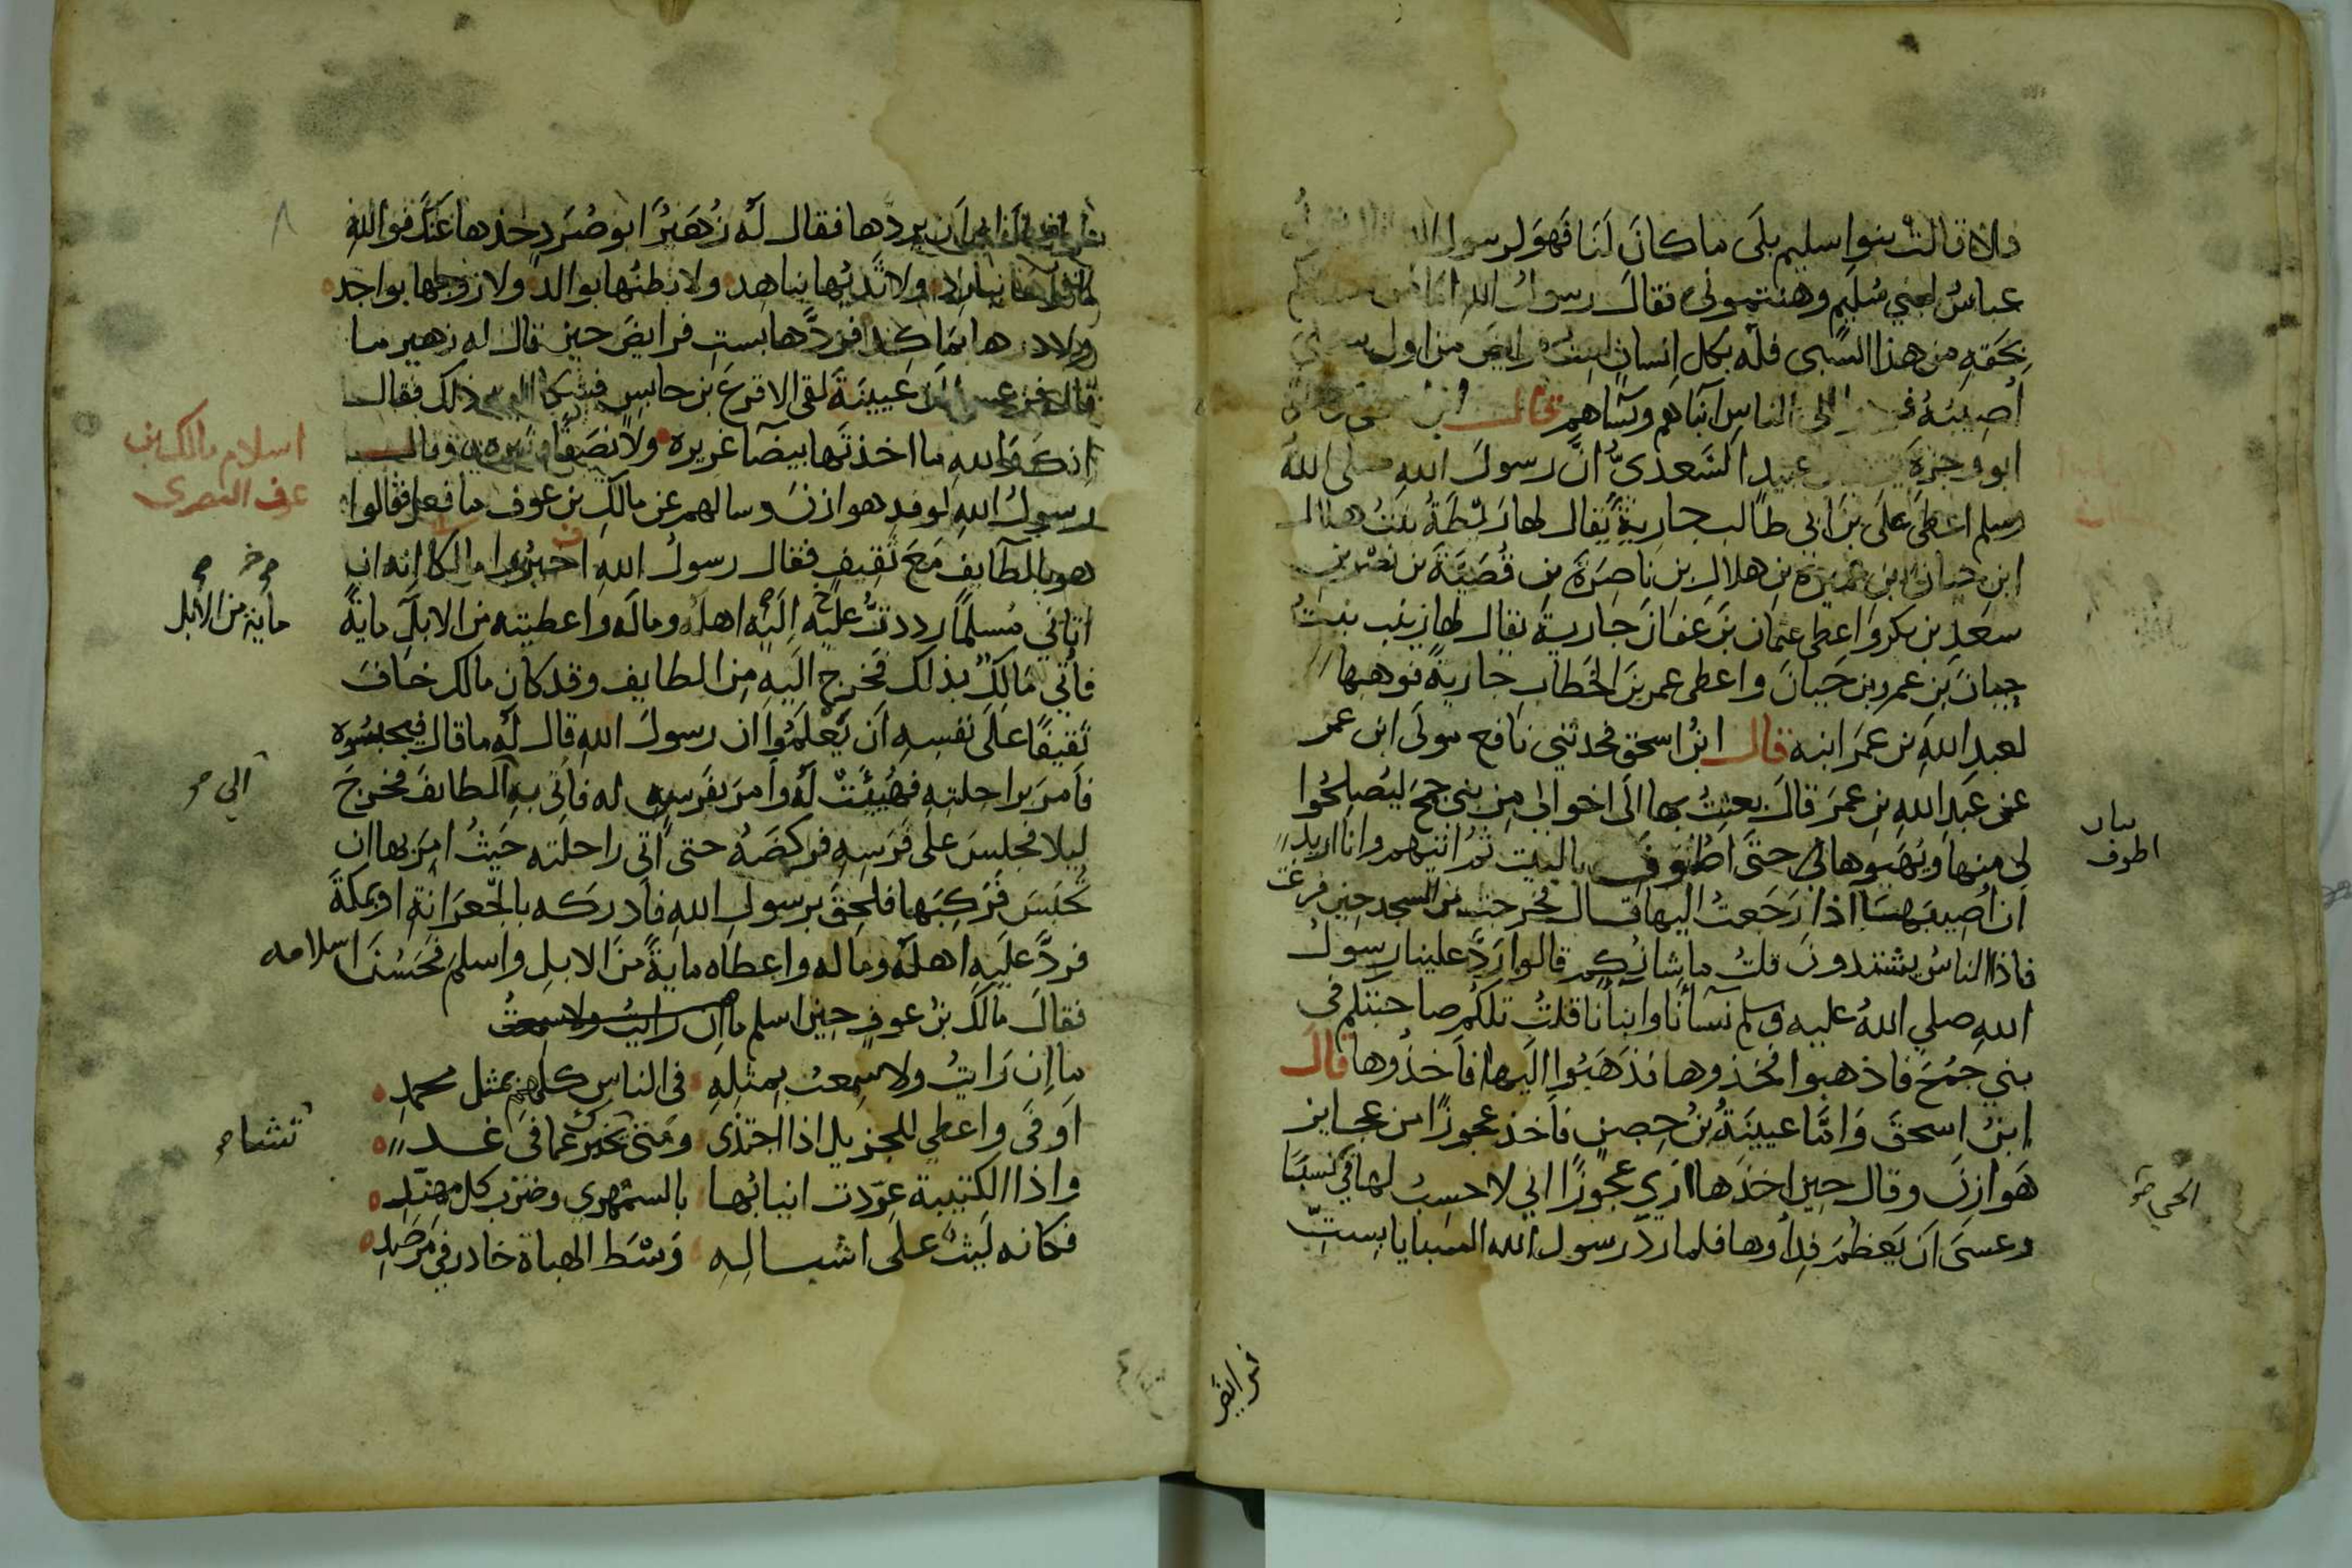 فلا قالت بنوا سليم بلى ما كان لنا فهو لرسول الله
عباس لبني سليم وهنتموني فقال رسول الله اما من
بحقه من هذا السبي فله بكل انسان ست فرايض من اول سبي
اصيبه الى الناس ابناهم ونساهم قال ابن
ابو وجزة عبيد السعدي ان رسول الله صلى الله
وسلم اعطى علي بن ابي طالب جارية يقال لها ريطة بنت هلال
ابن حيان بن عميرة بن هلال بن ناصرة بن قصية بن نصر بن
سعد بن بكر واعطى عثمان بن عفان جارية يقال لها زينب بنت
حيان بن عمرو بن حيان واعطى عمر بن الخطاب جارية فوهبها
لعبد الله بن عمر ابنه قال ابن اسحق فحدثني نافع مولى ابن عمر
عن عبد الله بن عمر قال بعثت بها الى اخوالي من بني جمح ليصلحوا
لي منها ويهيوها لي حتى اطوف بالبيت ثم اتيهم وانا اريد
ان اصيبها اذا رجعت اليها قال فخرجت من المسجد حين فرغت
فاذا الناس يشتدون قلت ما شانكم قالوا رد علينا رسول
الله صلي الله عليه وسلم نسآنا وابنآنا قلت تلكم صاحبتكم في
بني جمح فاذهبوا فخذوها فذهبوا اليها فاخذوها قال
ابن اسحق واما عيينة بن حصن فاخذ عجوزا من عجايز
هوازن وقال حين اخذها اري عجوزا اني لاحسب لها في نسبا
وعسى ان يعظم فداوها فلما رد رسول الله السبايا بست
اطوف
الحي
فرايض ابى ان يردها فقال له زهير ابو صرد خذها عنك فوالله
ما فوها ببارد ولا ثديها بناهد ولا بطنها بوالد ولا زوجها بواجد
ولا درها بماكد فردها بست فرايض حين قال له زهير ما
قال ان عيينة لقي الاقرع بن حابس فشكا اليه ذلك فقال
انك والله ما اخذتها بيضا غريرة ولا نصفا وثيرة وقال
رسول الله لوفد هوازن وسالهم عن مالك بن عوف ما فعل فقالوا
هو بالطآيف مع ثقيف فقال رسول الله اخبروا مالكا انه ان
اتاني مسلما رددت عليه اليه اهله وماله واعطيته من الابل ماية
فاتي مالك بذلك فخرج اليه من الطايف وقد كان مالك خاف
ثقيفا على نفسه ان يعلموا ان رسول الله قال له ما قال فيحبسوه
فامر براحلته فهيئت له وامر بفرس له فاتي به الطايف فخرج
ليلا فجلس على فرسه فركضه حتى اتى راحلته حيث امر بها ان
تحبس فركبها فلحق برسول الله فادركه بالجعرانة او بمكة
فرد عليه اهله وماله واعطاه ماية من الابل واسلم فحسن اسلامه
فقال مالك بن عوف حين اسلم ما ان رايت ولا سمعت
ما ان رايت ولا سمعت بمثله في الناس كلهم بمثل محمد
اوفى واعطي للجزيل اذا اجتذى ومتى يخبرك عما في غد
واذا الكتيبة عردت انيابها بالسمهري وضرب كل مهند
فكانه ليث على اشباله وسط الهباة خادر في مرصد
اسلام مالك بن
عوف النصرى
ماية من الابل
الى
تشا